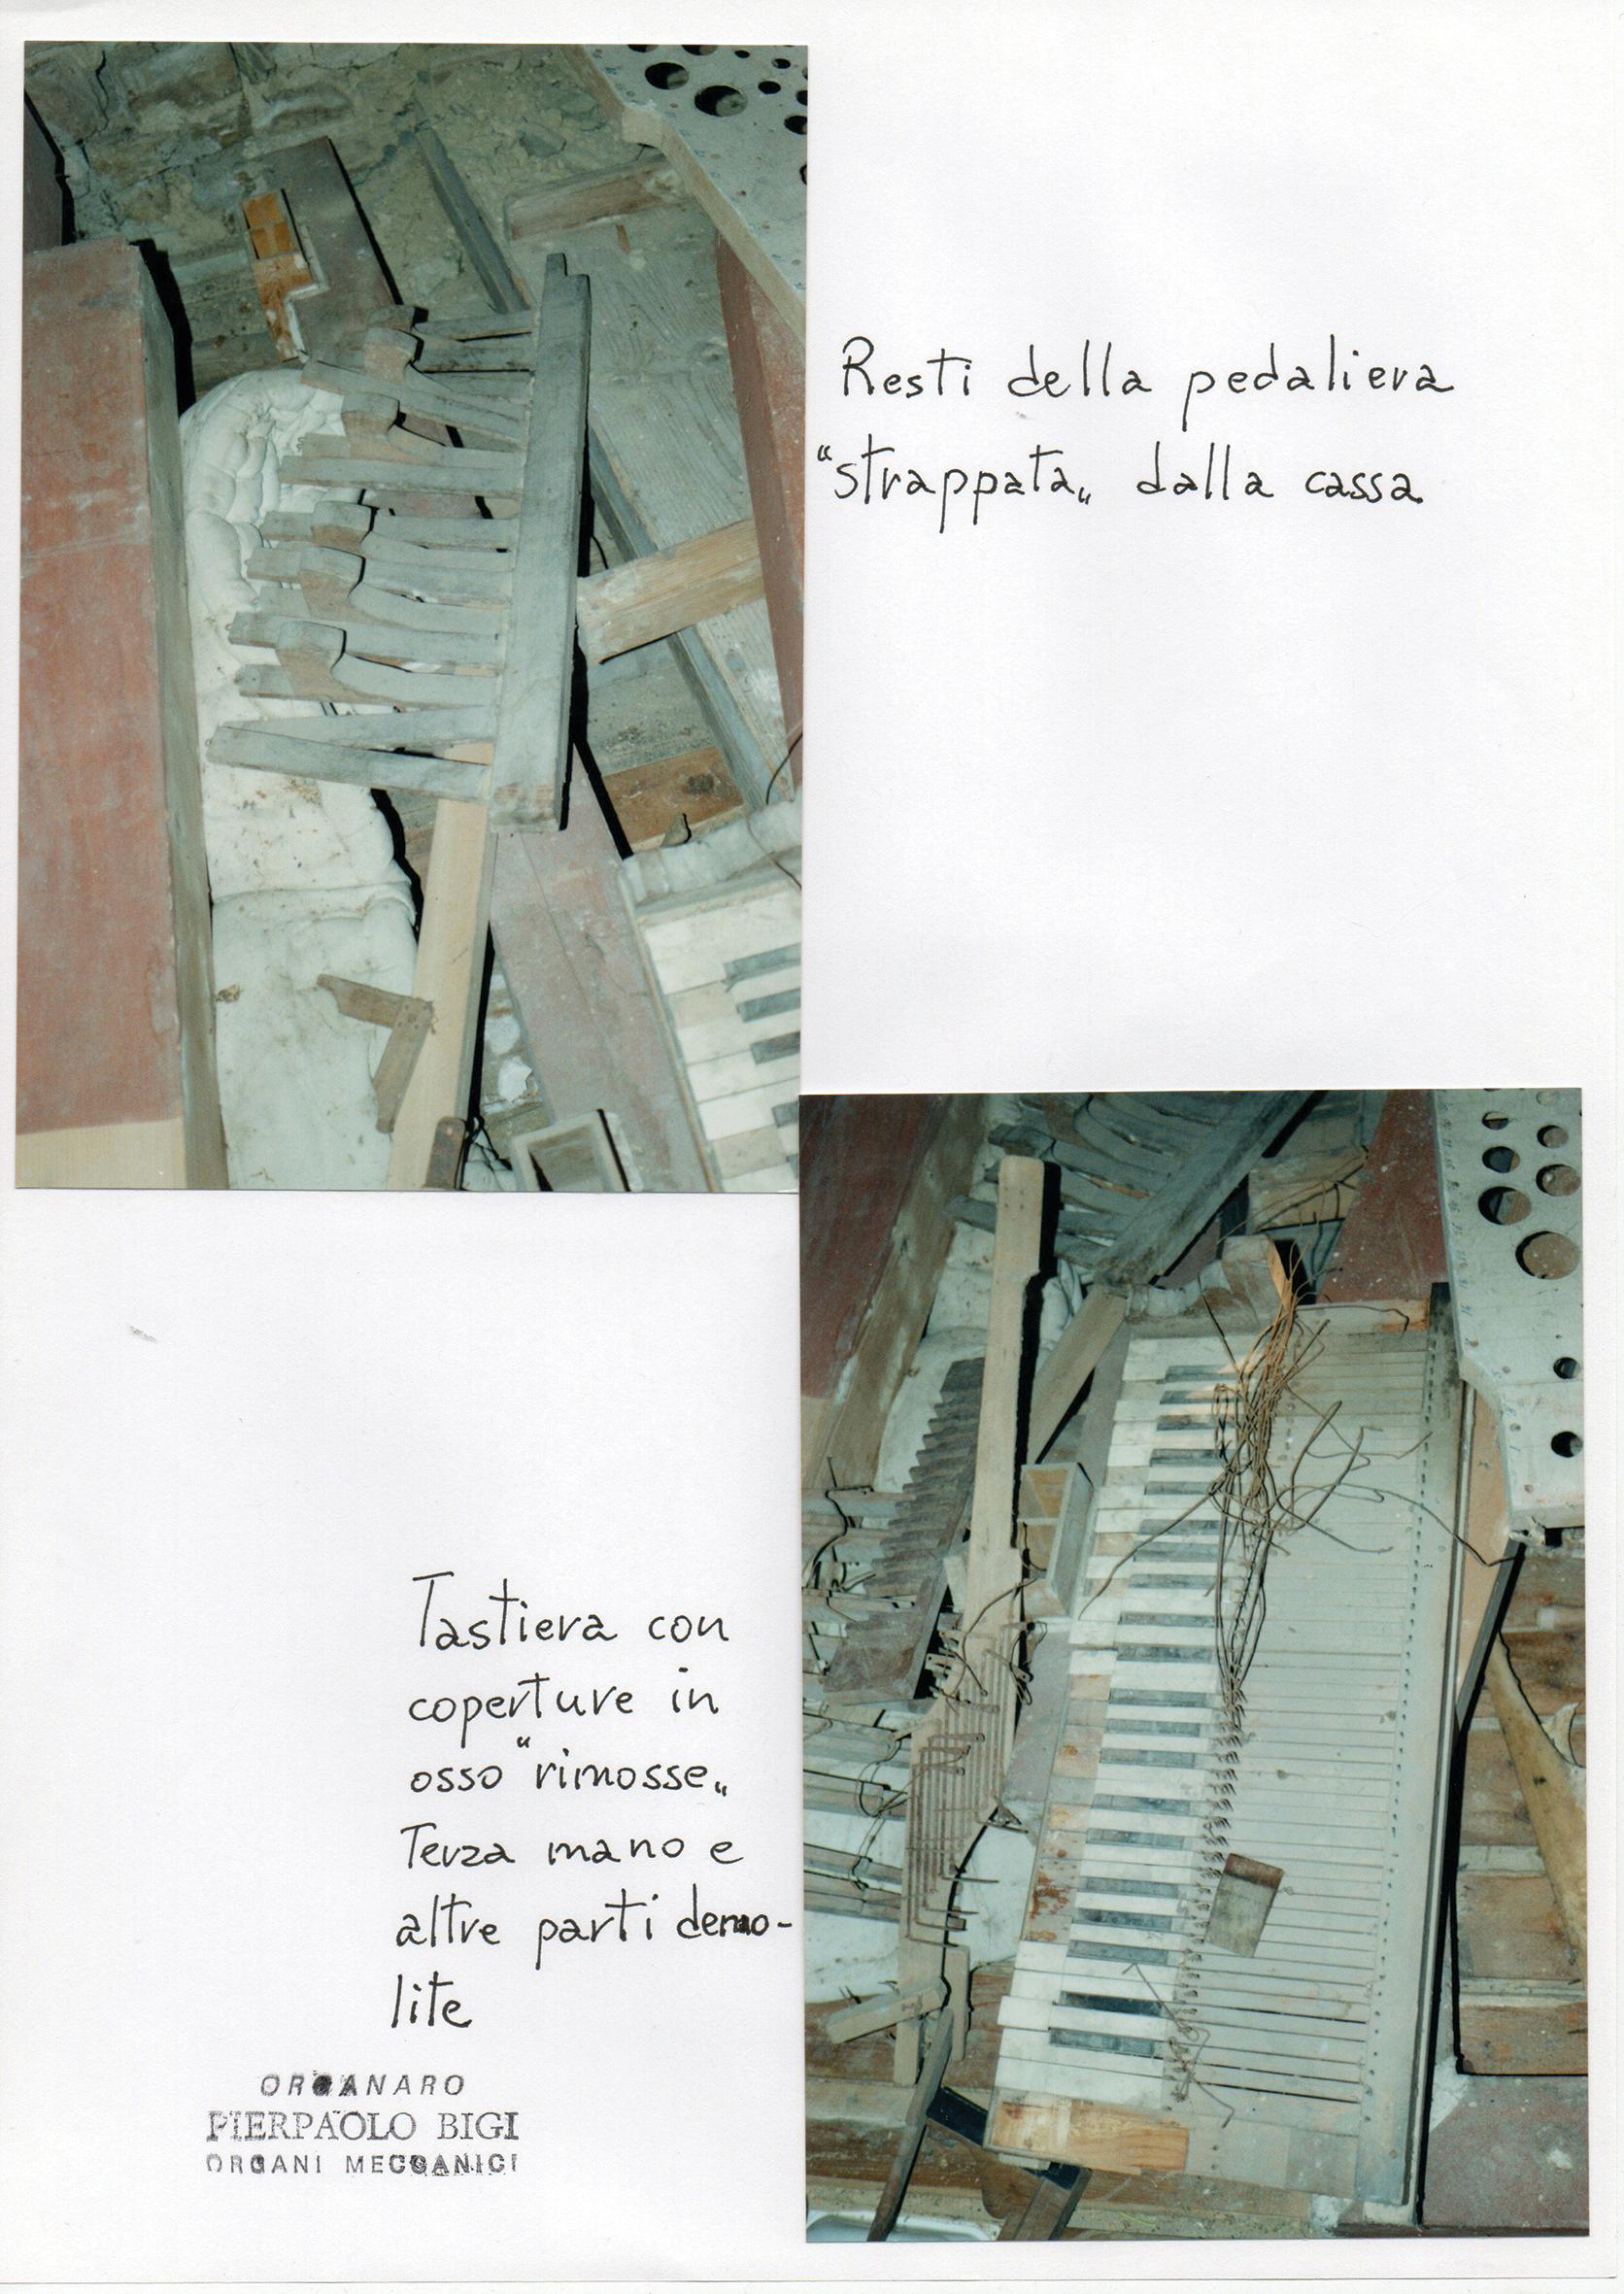 Resti della pedaliera
“strappata„ dalla cassa
Tastiera con
coperture in
osso “rimosse„
Terza mano e
altre parti demo-
lite
ORGANARO
PIERPAOLO BIGI
ORGANI MECCANICI